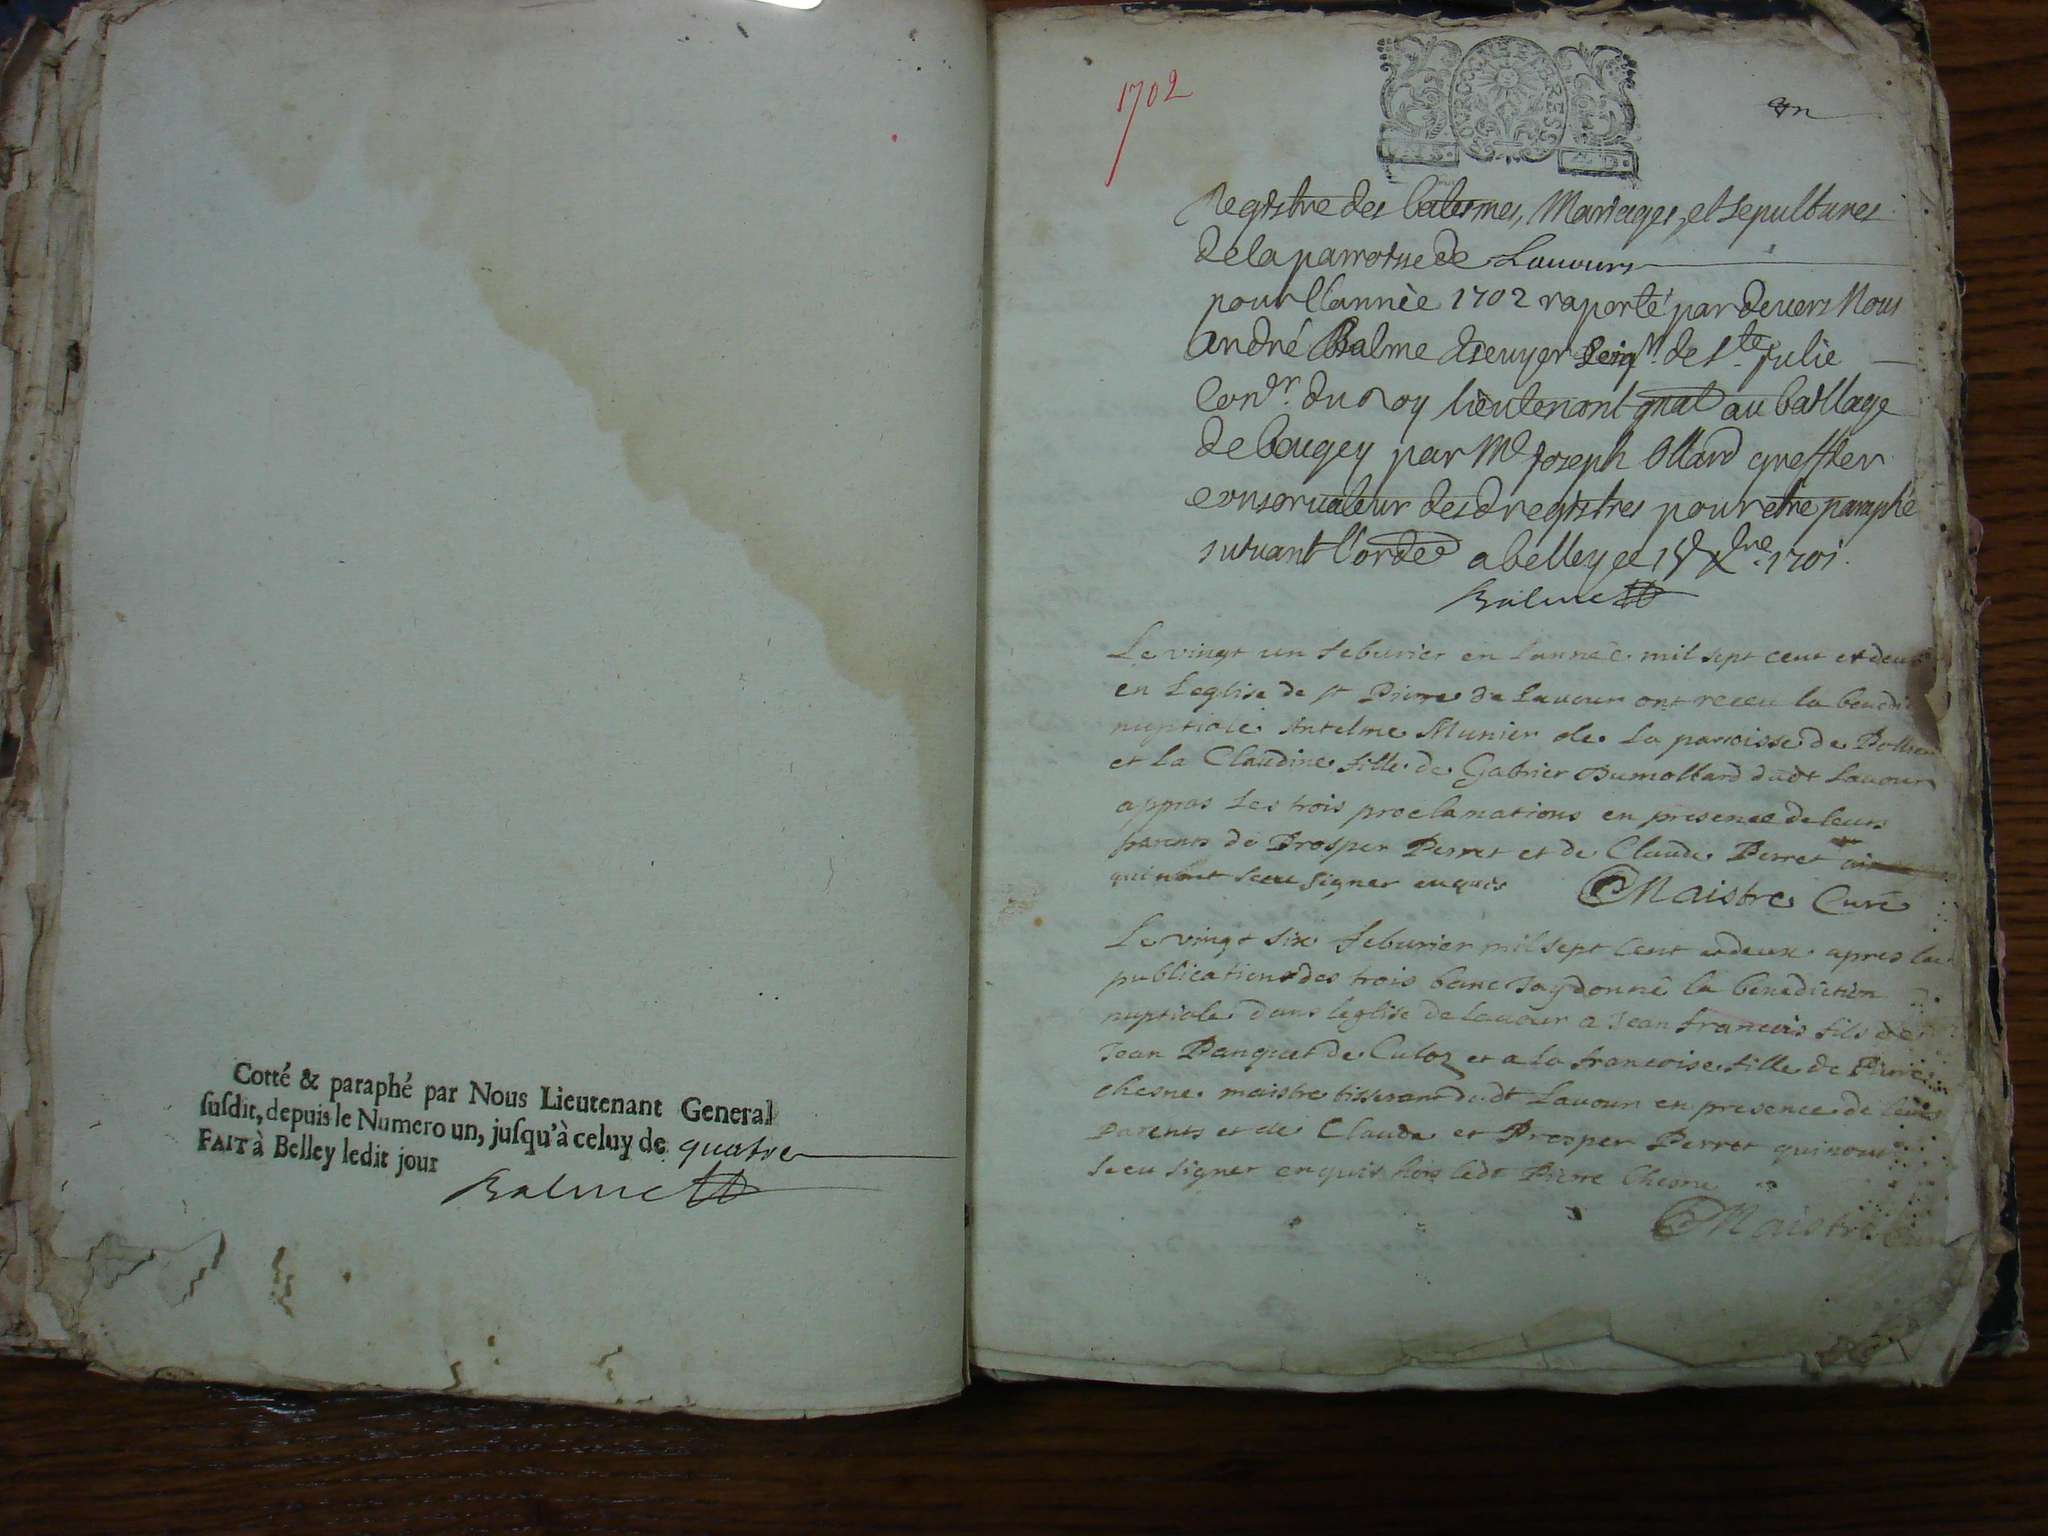 Cotté & paraphé par Nous Lieutenant General
susdit, depuis le Numero un, jusqu'à celuy de quatre
FAIT à Belley ledit jour
Balme
1702
un
Registre des batesmes, Mariages, et sepultures
de la parroisse de Lavours
pour l'année 1702 raporté par devers Nous
André Balme Escuyer Seigr. de Ste. Julie
Conr. du Roy lieutenant gnal au baillage
de bougey par Me Joseph Ollard greffier
conservateur desd registres pour etre paraphé
suivant l'orde a belley ce 15e Xbre. 1701.
Balme
Le vingt un feburier en lannee mil sept cent et deux
en Leglise de st Pierre de Lavour ont receu la
nuptiale Antelme Munier de La paroisse de Pollieu
et La Claudine fille de Gabriel Dumollard dudt Lavour
appres Les trois proclamations en presence de leurs
parents de Prosper Perret et de Claude Perret
qui nont sceu signer enquis Maistre Curé
Le vingt six feburier mil sept cent et deux apres la
publication des trois banc Jay donné la benediction
nuptiale dans leglise de lavour a Jean francois fils de
Jean Panquet de Culoz et a La francoise fille de Pierre
Chesne maistre tisserand dudt Lavour en presence de leurs
Parents et de Claude et Prosper Perret qui nont
sceu signer enquis hors ledt Pierre Chesne
Maistre Curé